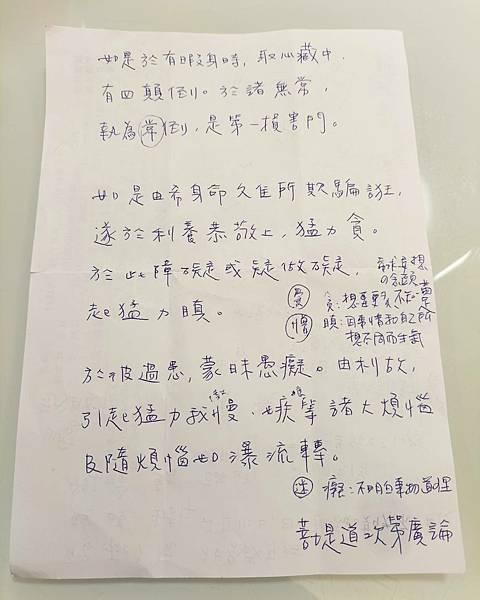 如是於有暇身時，取心藏中，
有四顛倒。於諸無常，
執為常倒，是第一損害門。
如是由希身命久住所欺騙誑，
遂於利養恭敬上，猛力貪。
於此障碍或疑做碍，
起猛力瞋。
的念頭
愛 貪：想要更多，不知
憎 瞋：因事情和自己所
想不同而生氣
於彼過患，蒙昧愚癡。由利故，
引起猛力我慢、嫉等諸大煩惱
及隨煩惱如瀑流轉。
迷 癡：不明白事物道理
菩提道次第廣論